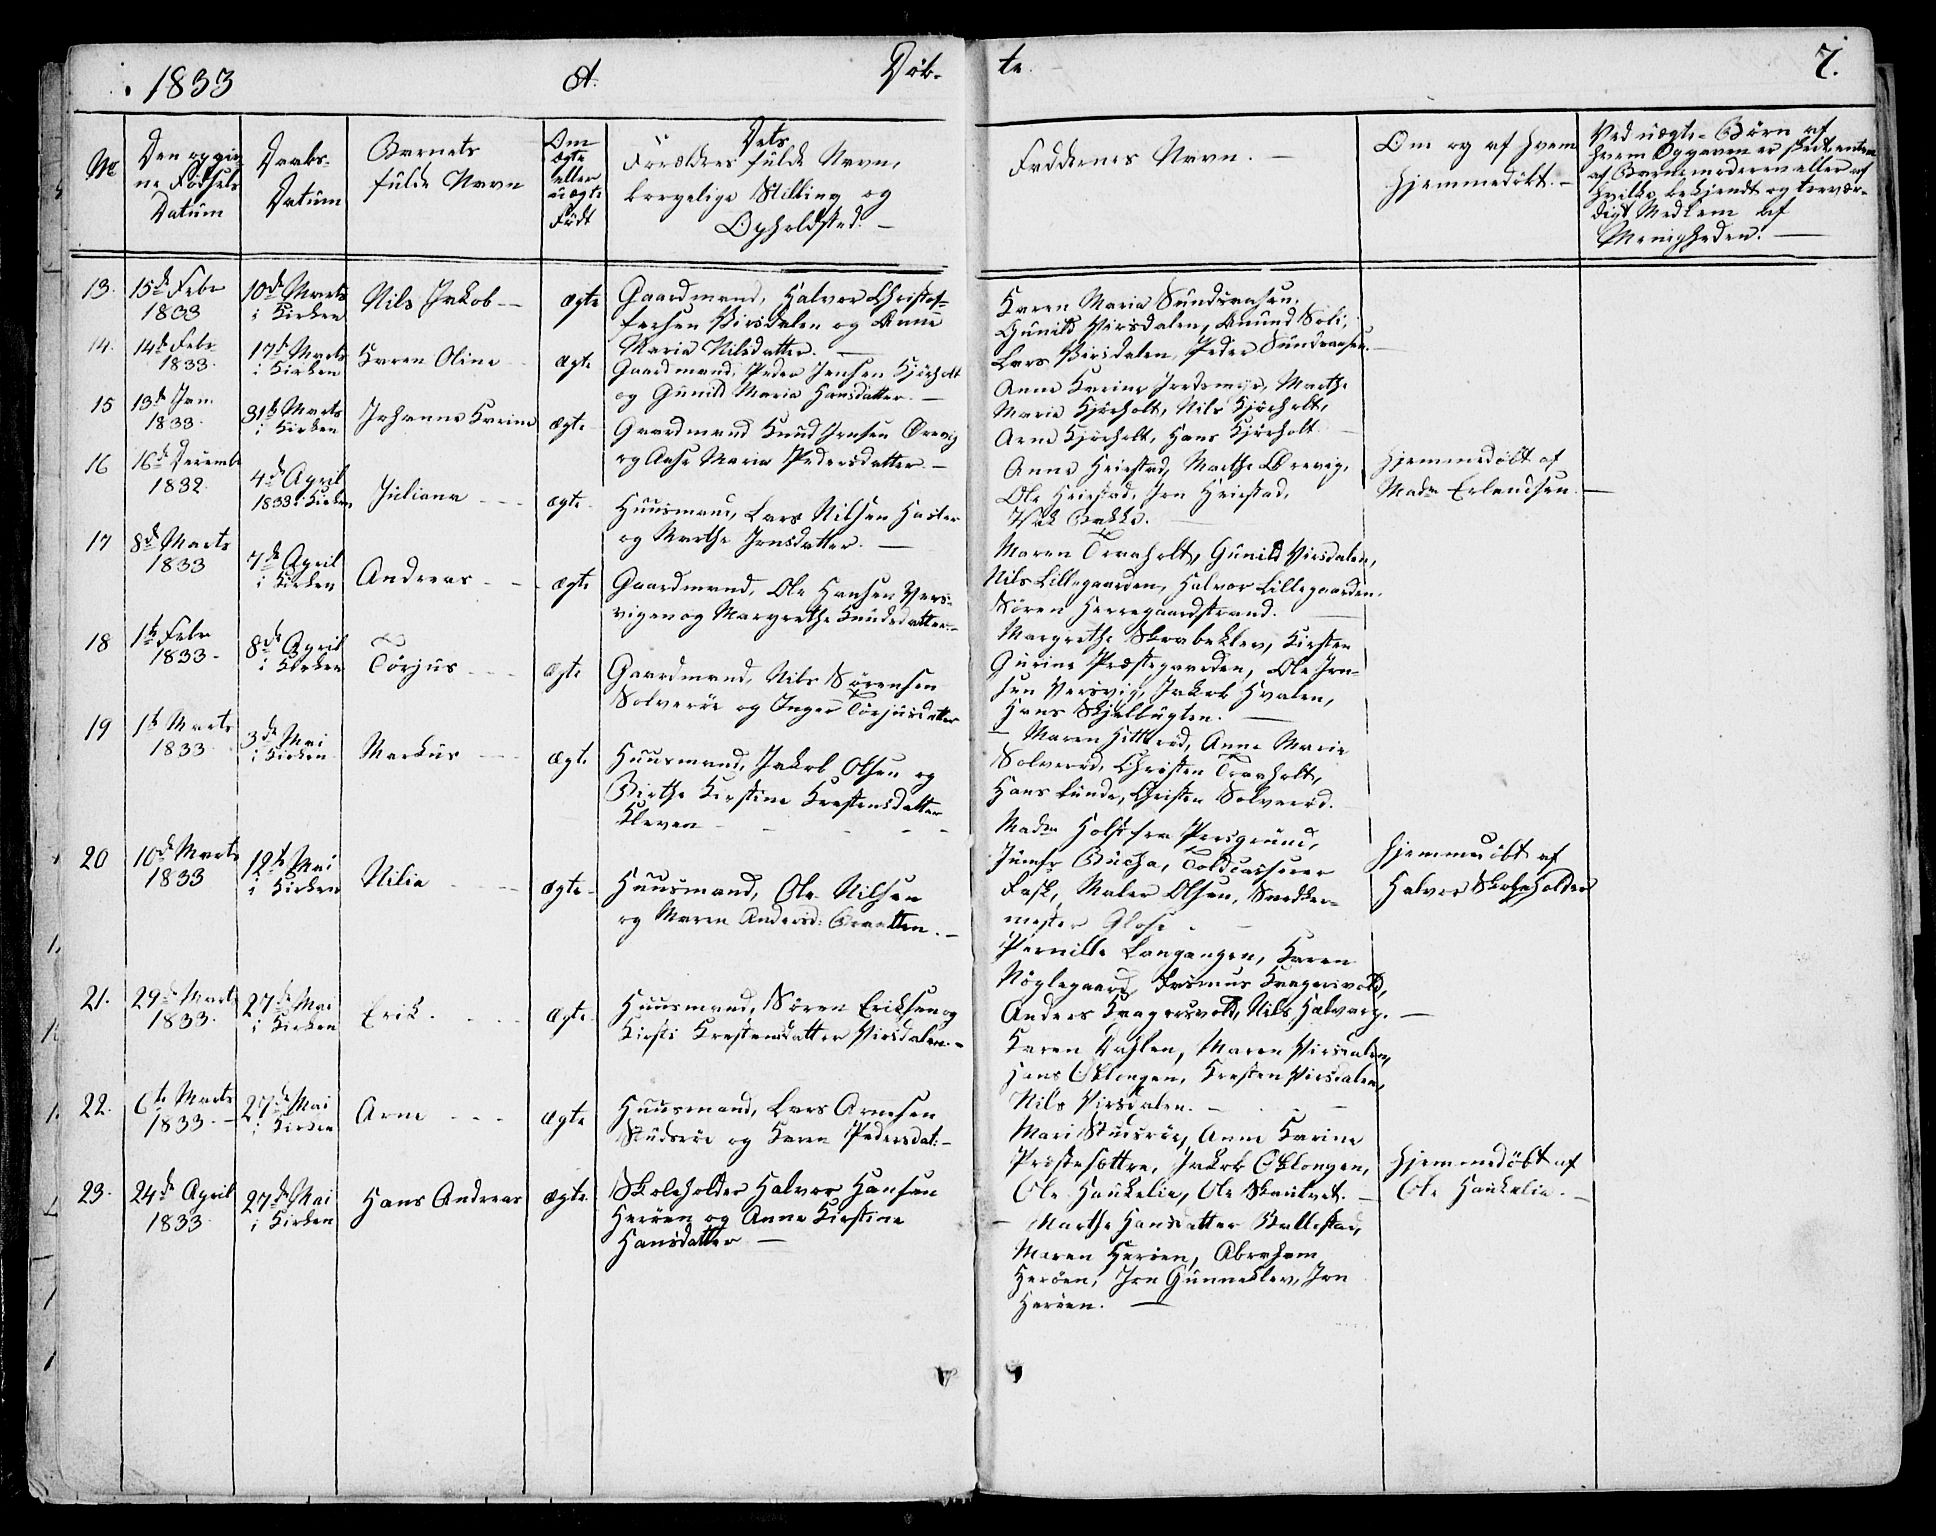 1833 A. Døb-
te. 7.
No
Den opgiv-
ne Fødsels
Datum
Daabs-
Datum
Barnets
fulde Navn
Om
ægte
eller
uægte
Født
Dets
Forældres fulde Navn,
borgelige Stilling og
Opholdsted. -
Faddernes Navn. -
Om og af hvem
hjemmedøbt. -
Ved uægte-Børn af
hvem Opgaven er skedt, enten
af Barnemoderen eller af
hvilke bekjendt og troevær-
digt Medlem af
Menigheden. -
13. 15de Febr
1833
10de Marts
i Kirken
Nils Jakob -
ægte
Gaardmand, Halvor Christof-
fersen Virsdalen og Anne
Maria Nilsdatter. -
Karen Maria Sundsaasen,
Gunild Virsdalen, Amund Soli,
Lars Virsdalen, Peder Sundsaasen. -
14. 14de Febr
1833.
17de Marts
i Kirken
Karen Oline
ægte
Gaardmand, Peder Jensen Kjørholt
og Gunild Maria Hansdatter. -
Anne Karine, Marthe
Maria Kjørholt, Nils Kjørholt,
Arne Kjørholt, Hans Kjørholt.
15 13de Jan.
1833.
31te Marts
i Kirken
Johanne Karine
ægte
Gaardmand Knud Jensen Ørevig
og Aase Maria Pedersdatter. -
Anne Heiestad, Marthe Ørevig,
Ole Heiestad, Jon Heiestad,
Isak Bakke.
16 16de Decembr
1832.
4de April
1833 i Kirken
Juliana
ægte
Huusmand, Lars Nilsen
og Marthe Jensdatter. -
Maren Traaholt, Gunild Virsdalen,
Nils Lillegaarden, Halvor Lillegaarden,
Søren Herregaardstrand.
Hjemmedøbt af
Madm Erlandsen. -
17 8de Marts
1833
7de April
i Kirken
Andreas
ægte
Gaardmand, Ole Hansen Vers-
vigen og Margrethe Knudsdatter. -
Margrethe Skrabeklev, Kirsten
Gurine Præstegaarden, Ole Jen-
sen Versvig, Jakob Hvalen,
Hans Skjelbugten. -
18 1te Febr
1833 -
8de April
i Kirken
Torjus
ægte
Gaardmand, Nils Sørensen
Solverøe og Inger Torjusdatter
- Maren Hitterød, Anne Marie
Solverød, Christen Traaholt,
Hans Lunde, Christen Solverød.
19 1te Marts
1833
3de Mai
i Kirken
Markus
ægte
Huusmand, Jakob Olsen og
Birthe Kirstine Krestensdatter
Kleven
Madm Holst fra Porsgrund,
Jumfr Bucha, Toldcasserer
Fask, Maler Olsen, Snedker-
mester Glose.
20 10de Marts
1833
12te Mai
i Kirken
Nilia
ægte
Huusmand, Ole Nilsen
og Maren Andersd: -
Pernille Langangen, Karen
Nøglegaard, Rasmus Kragersvold,
Anders Kragersvold, Nils Halvarp. -
Hjemmedøbt af
Halvor Skoleholder
21. 29de Marts
1833.
27de Mai
i Kirken
Erik
ægte
Huusmand, Søren Eriksen og
Kirsti Krestensdatter Virsdalen. -
Karen Dahlen, Maren Virsdalen,
Hans Oklongen, Kresten Virsdalen,
Nils Virsdalen. -
22. 6te Marts
1833. -
27de Mai
i Kirken
Arne
ægte
Huusmand, Lars Arnesen
Studsrøe og Karen Pedersdat: -
Mari Studsrøe, Anne Karine
Præstesættre, Jakob Oklongen,
Ole Haukelie, Ole Skaulvet. -
Hjemmedøbt af
Ole Haukelie. -
23. 24de April
1833
27de Mai
i Kirken
Hans Andreas
ægte
Skoleholder Halvor Hansen
Herøen og Anne Kirstine
Hansdatter -
- Marthe Hansdatter Ballestad,
Maren Herøen, Abraham
Herøen, Jon Gunneklev, Jon
Herøen. -